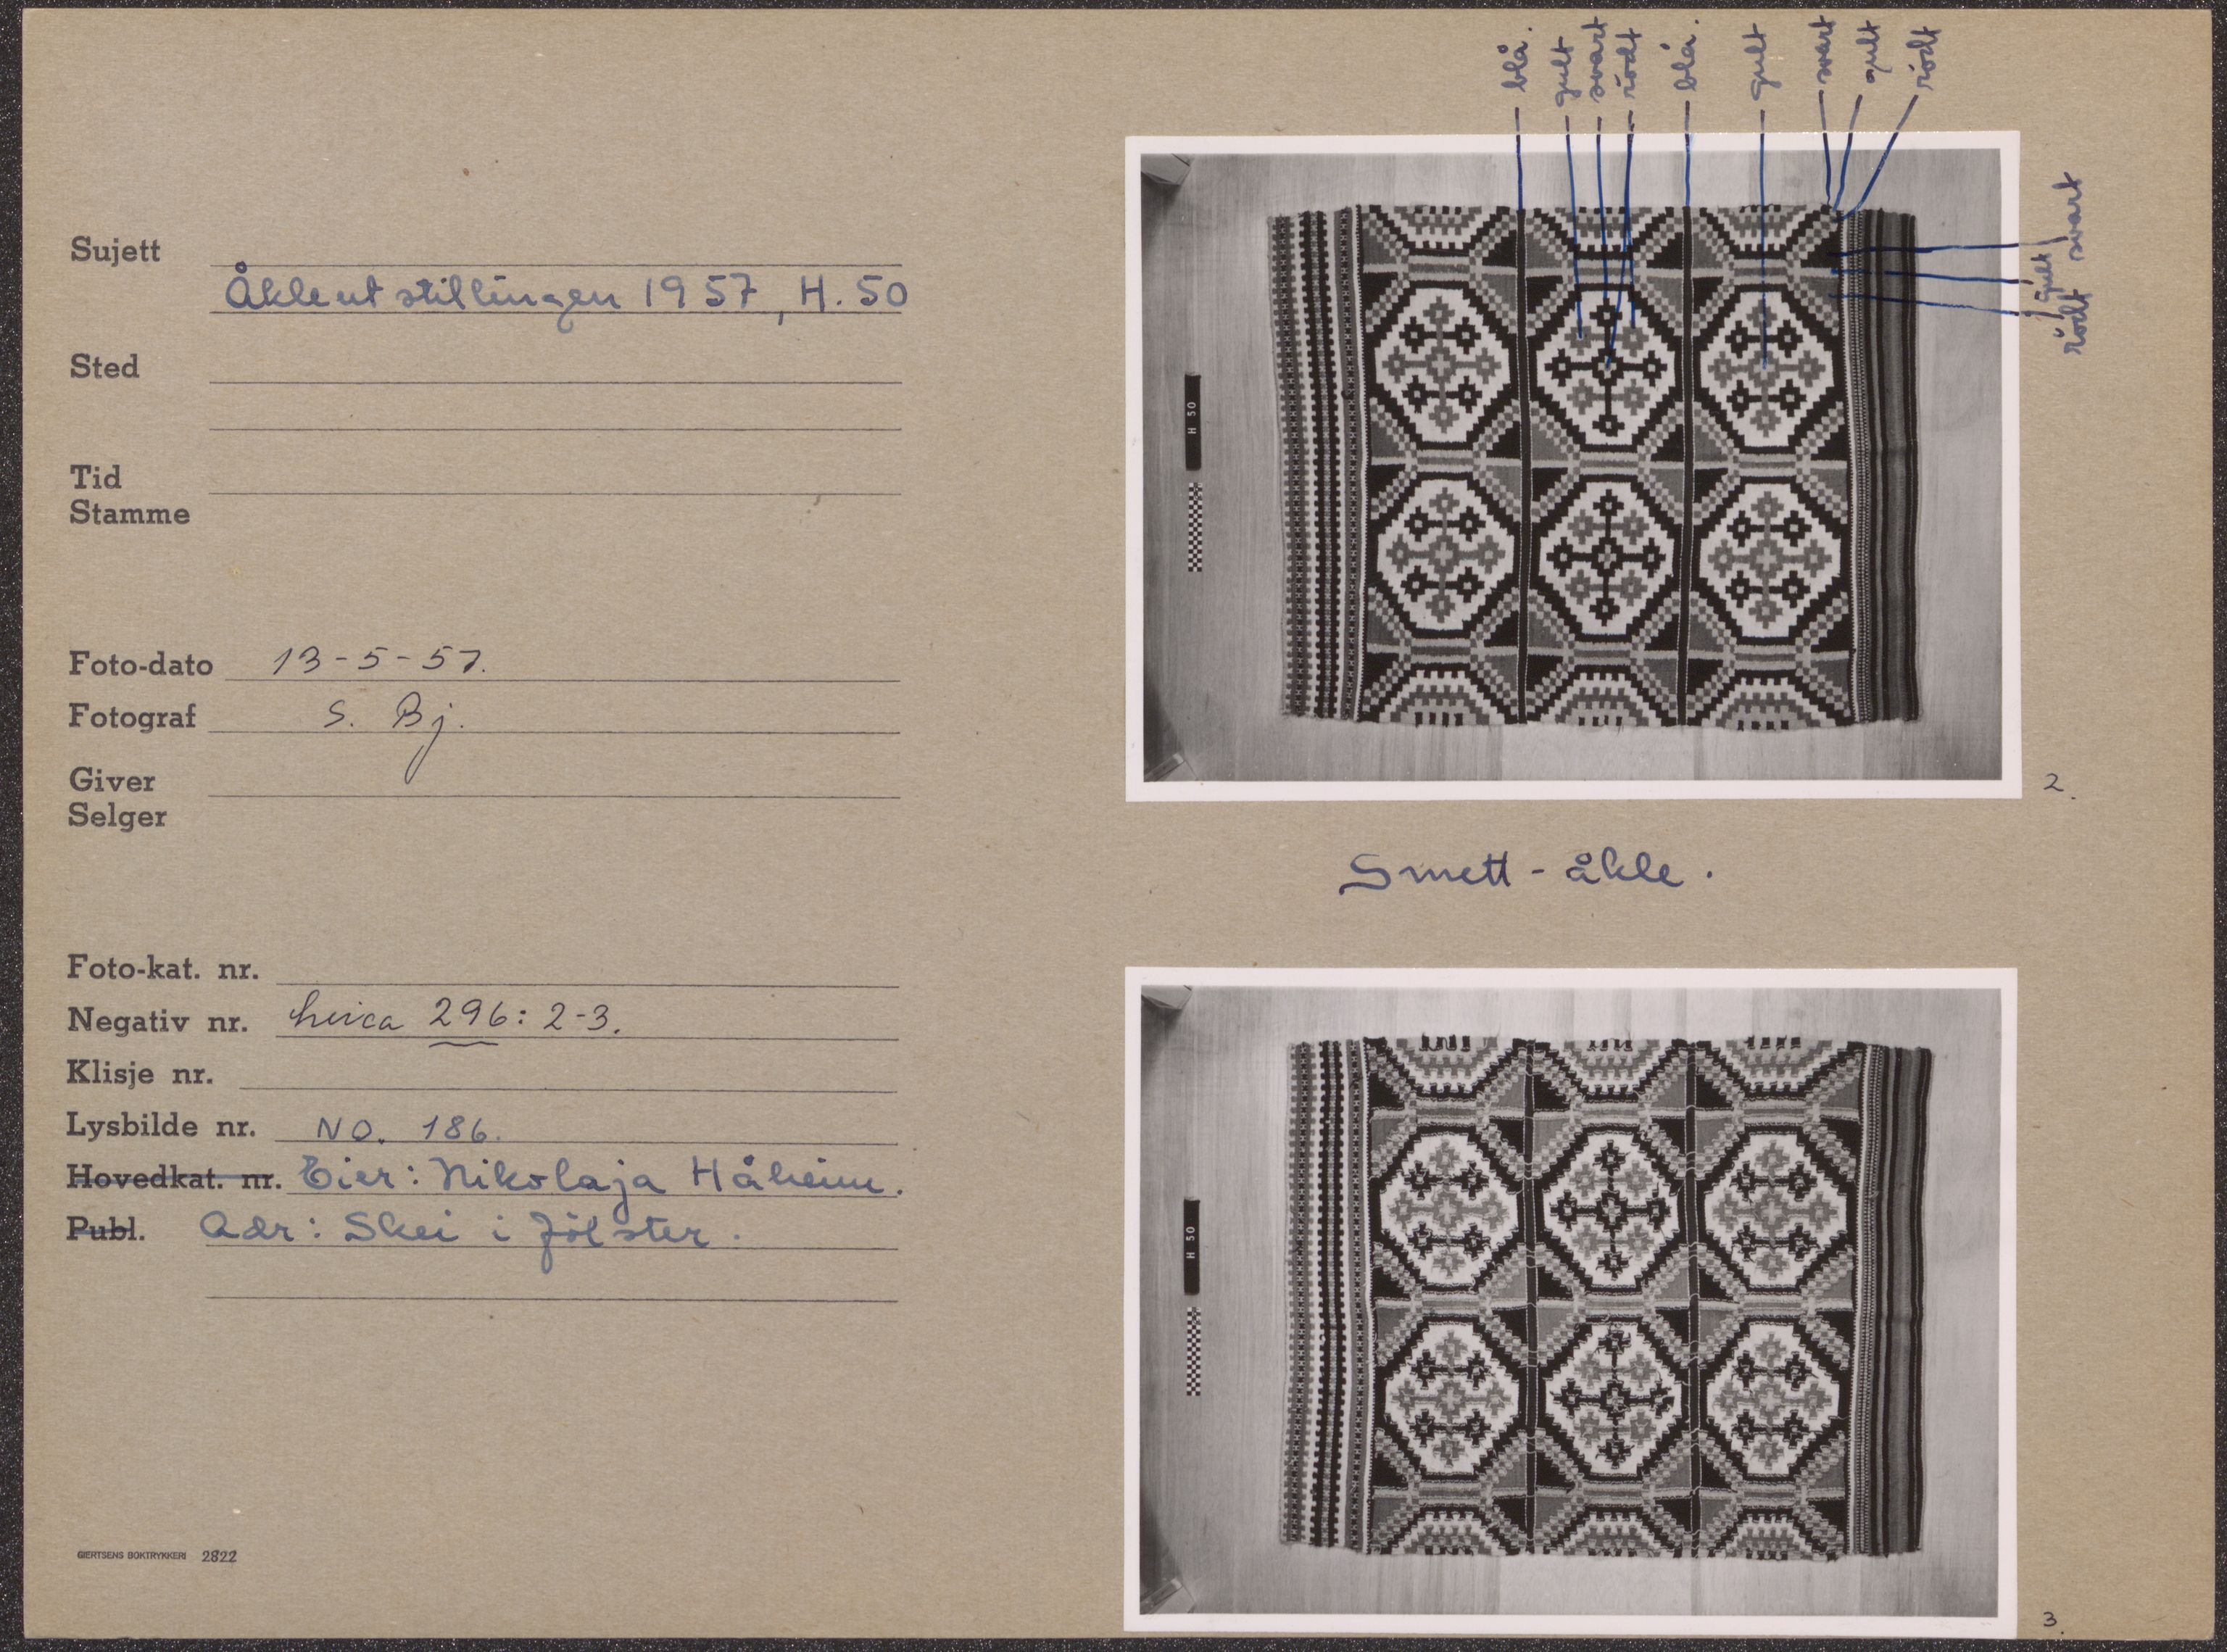 Sujett
Åkleutstillingen 1957, H. 50
Sted
Tid
Stamme
Foto-dato 13-5-57.
Fotograf S. Bj.
Giver
Selger
Foto-kat. nr.
Negativ nr. Leica 296: 2-3.
Klisje nr.
Lysbilde nr. NO. 186.
Hovedkat. nr. Eier: Nikolaja Håheim.
Publ. Adr: Skei i Jölster.
GIERTSENS BOKTRYKKERI 2822
blå.
gult
svart
rödt
blå.
gult
svart
gult
rödt
svart
gult
rödt
H 50
2.
Smett-åkle.
H 50
3.